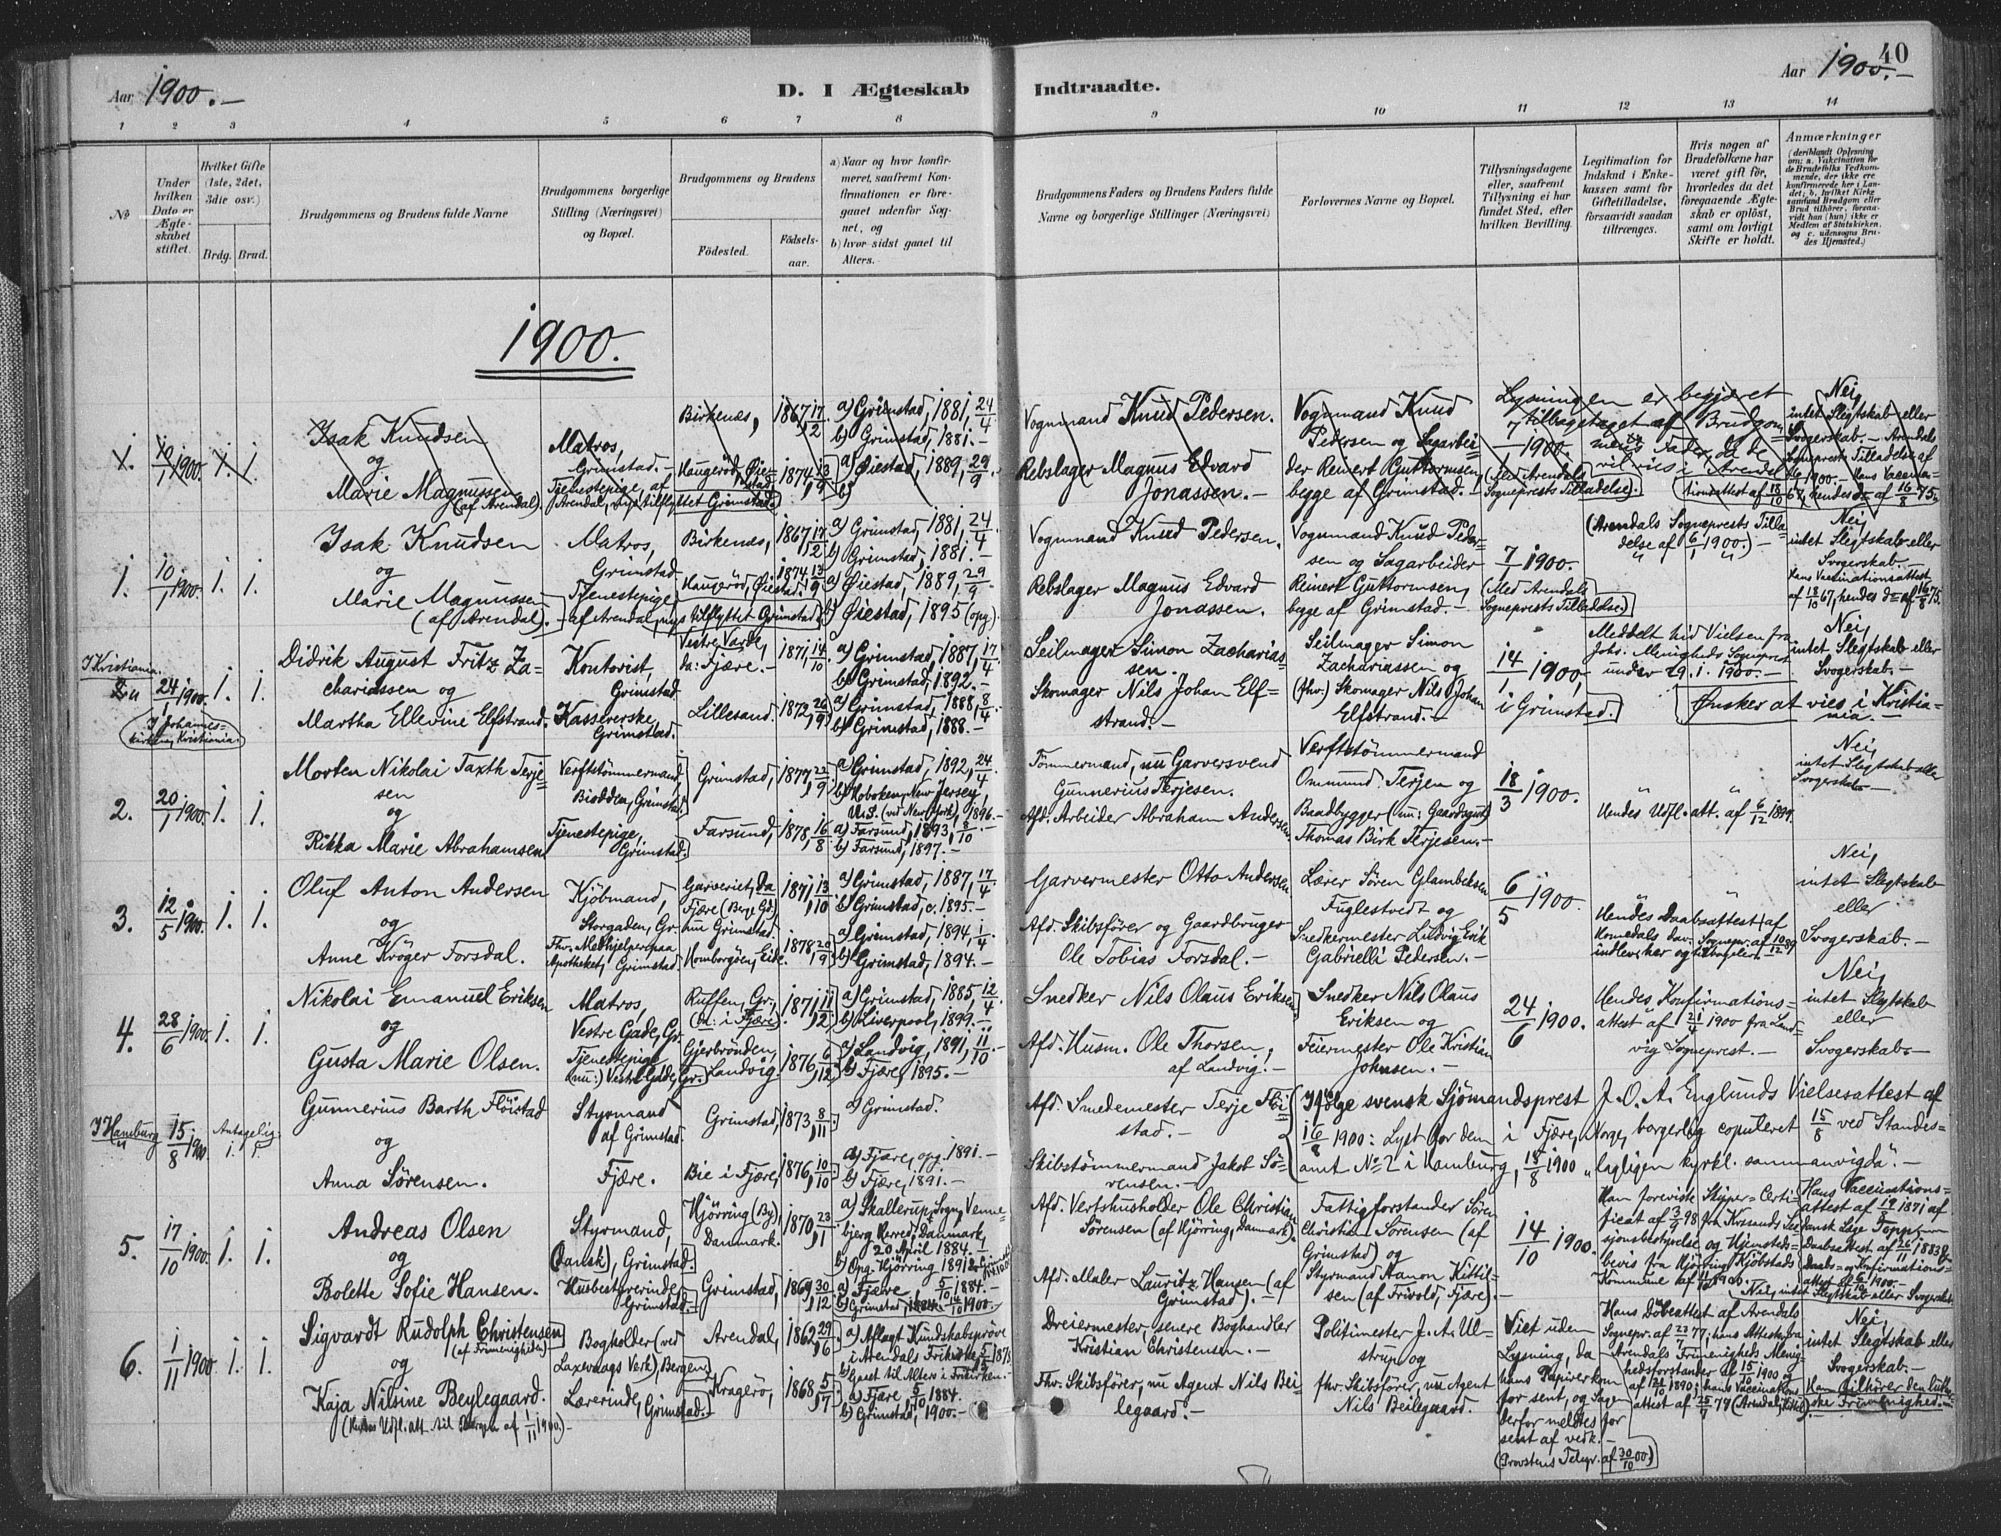 Aar 1900.-
D. I Ægteskab Indtraadte.
Aar 1900.-
40
1 2 3 4 5 6 7 8 9 10 11 12 13 14
No
Under hvilken Dato er Ægteskabet stiftet.
Hvilket Gifte (1ste, 2det, 3die osv.)
Brdg. Brud.
Brudgommens og Brudens fulde Navne
Brudgommens borgerlige Stilling (Næringsvei) og Bopæl.
Brudgommens og Brudens
Födested.
Födselsaar.
a) Naar og hvor konfirmeret, saafremt Konfirmationen er foregaaet udenfor Sognet, og
b) hvor sidst gaaet til Alters.
Brudgommens Faders og Brudens Faders fulde Navne og borgerlige Stillinger (Næringsvei)
Forlovernes Navne og Bopæl.
Tillysningsdagene eller, saafremt Tillysning ei har fundet Sted, efter hvilken Bevilling.
Legitimation for Indskud i Enkekassen samt for Giftetilladelse, forsaavidt saadan tiltrænges.
Hvis nogen af Brudefolkene har været gift för, hvorledes da det foregaaende Ægteskab er oplöst, samt om lovligt Skifte er holdt.
Anmærkninger (deriblandt Oplysning om: a. Vakcination for de Brudefolks Vedkommende, der ikke ere konfirmerede her i Landet; b. hvilket Kirkesamfund Brudgom eller Brud tilhörer, forsaavidt han (hun) ikke er Medlem af Statskirken, og c. udensogns Brudes Hjemsted.)
1900.
1. 10/1 1900. 1. 1.
Isak Knudsen
og
Marie Magnussen
(af Arendal).
Matros,
Grimstad.-
Tjenestepige, af
Arendal, nys tilflyttet Grimstad.
Birkenæs, 1867 17/2
Haugeröd, Øiestad 1874 13/9
a) Grimstad, 1881, 24/4
b) Grimstad, 1881.-
a) Øiestad, 1889, 29/9
b)
Vognmand Knud Pedersen.
Rebslager Magnus Edvard
Jonassen.-
Vognmand Knud
Pedersen og Sagarbeider Reinert Guttormsen,
begge af Grimstad.-
7/1 1900.
(Med Arendals
Sogneprests Tilladelse).
Lysningen er begjæret
tilbagetaget af Brudgommens Fader, da de
vil vies i Arendal
Nei,
intet Slegtskab eller
Svogerskab.- Arendals
Sogneprests Tilladelse af
1900.-
1. 10/1 1900. 1. 1.
Isak Knudsen
og
Marie Magnussen
(af Arendal).-
Matros,
Grimstad
Tjenestepige
af Arendal, nys tilflyttet Grimstad.
Birkenæs, 1867 17/2
Haugeröd, Øiestad. 1874 13/9
a) Grimstad, 1881, 24/4
b) Grimstad, 1881.-
a) Øiestad, 1889, 29/9
b) Øiestad, 1895 (opg).
Vognmand Knud Pedersen.
Rebslager Magnus Edvard
Jonassen.
Vognmand Knud Pedersen og Sagarbeider
Reinert Guttormsen,
begge af Grimstad.-
7/1 1900.
(Med Arendals
Sogneprests Tilladelse.)
(Arendals Sogneprests Tilladelse af 6/1 1900.)-
Nei
intet Slegtskab eller
Svogerskab.-
Hans Vaccinationsattest
af 18/10 67, hendes do af 16/8 75.
I Kristiania
2 24/1 1900. 1. 1.
I Johanneskirken, Kristiania.
Didrik August Fritz Zachariassen og
Martha Ellevine Elfstrand.
Kontorist,
Grimstad
Kassererske,
Grimstad.
Vestre Varde,
da: Fjære.- 1871, 14/10
Lillesand. 1872, 20/9
a) Grimstad, 1887, 17/4
b) Grimstad, 1892.-
a) Grimstad, 1888, 8/4
b) Grimstad, 1888.-
Seilmager Simon Zachariassen.-
Skomager Nils Johan Elfstrand.-
Seilmager Simon
Zachariassen og
(fhv.) Skomager Nils Johan
Elfstrand.-
14/1 1900,
i Grimstad.
Meddelt hid Vielsen fra
Johs. Menigheds Sogneprest
under 29.1.1900.-
Ønsker at vies i Kristiania.-
Nei,
intet Slegtskab eller
Svogerskab.-
2. 20/1 1900. 1. 1.
Morten Nikolai Taxth Terjesen
og
Rikka Marie Abrahamsen
Verftstömmermand,
Biodden, Grimstad.
Tjenestepige,
Grimstad.
Grimstad, 1877, 22/9
Farsund, 1878, 16/8
a) Grimstad, 1892, 24/4
b) Hoboken, New Jersey,
U.S. (ved New York), 1896.-
a) Farsund, 1893, 8/10.
b) Farsund, 1897.-
Tömmermand, nu Garversvend
Gunnerius Terjesen.
Afd. Arbeider Abraham Andersen
Verftstömmermand
Ommund Terjesen og
Baadbygger (nu: Gaardsgut)
Thomas Birk Terjesen.-
18/3 1900.
"
Hendes Udfl.-att. af 6/12 1899.
"
Nei
intet Slegtskab eller
Svogerskab.-
3. 12/5 1900. 1. 1.
Oluf Anton Andersen
og
Anne Kröger Forsdal.
Kjöbmand,
Storgaden, Gr.
Fhv. Medhjelper paa
Apotheket, Grimstad.
Garveriet, da
Fjære (Berge Gd)
nu Grimstad. 1871, 13/10
Homborgöen, Eide. 1878 20/9
a) Grimstad, 1887, 17/4
b) Grimstad, c. 1895.-
a) Grimstad, 1894, 1/4
b) Grimstad, 1894.-
Garvermester Otto Andersen
Afd. Skibsförer og Gaardbruger
Ole Tobias Forsdal.-
Lærer Sören Glambeksen
Fuglestvedt og
Snedkermester Ludvig Erik
Gabrielli Pedersen.-
6/5 1900.
"
Hendes Daabsattest af
Homedals dav. Sognepr. af 10/12 89
indlev. her og tilbagelev.
"
Nei,
intet Slegtskab
eller
Svogerskab.-
4. 28/6 1900. 1. 1.
Nikolai Emanuel Eriksen
og
Gusta Marie Olsen.
Matros,
Vestre Gade, Gr.
Tjenestepige
(nu:) Vestre Gade, Gr.
Ruffen, Gr.,
(da: i Fjære). 1871, 11/2
Gjerbrönden,
Landvig. 1876 6/12
a) Grimstad, 1885, 12/4
b) Liverpool, 1899.-
a) Landvig, 1891, 11/10
b) Fjære, 1895.-
Snedker Nils Olaus Eriksen
Afd. Husm. Ole Thorsen,
af Landvig.-
Snedker Nils Olaus
Eriksen og
Feiermester Ole Kristian
Johnsen.-
24/6 1900.
Hendes Konfirmationsattest af 21/4 1900 fra Landvig Sogneprest.-
Nei
intet Slegtskab
eller
Svogerskab.-
I Hamburg 15/8 1900 Antagelig 1. 1.
Gunnerius Barth Flöistad
og
Anna Sörensen.
Styrmand
af Grimstad.
Fjære.
Grimstad, 1873 8/11
Bie i Fjære, 1876, 10/10
a) Grimstad.
a) Fjære, opg. 1891.-
b) Fjære, 1891.-
Afd. Smedemester Terje Flöistad.-
Skibstömmermand Jakob Sörensen.-
Ifölge svensk Sjömandsprest J. O. A. Englunds Vielsesattest af
16/8 1900: Lyst for dem i Fjære, Norge, borgerlig copuleret 15/8 ved Standesamt No 2 i Hamburg, 15/8 1900 "lagligen kyrkl. sammanvigda".-
5. 17/10 1900. 1. 1.
Andreas Olsen
og
Bolette Sofie Hansen.
Styrmand,
(Dansk), Grimstad.
Husbestyrerinde,
Grimstad.
Hjörring (By),
Danmark. 1870 23/11
Grimstad, 1869 30/12
a) Skallerup Sogn, Vennebjerg Herred, Danmark,
20 April 1884.-
b) Opg. Hjörring 1891
a) Fjære 5/10 1884.-
b) Grimstad, 14/10 1900.-
Afd. Vertshusholder Ole Christian
Sörensen (af Hjörring, Danmark).-
Afd. Maler Lauritz Hansen (af
Grimstad).-
Fattigforstander Sören
Christian Sörensen (af
Grimstad) og
Styrmand Hanon Kittilsen (af Frivold, Fjære).-
14/10 1900.
Han foreviste Skipper-Certificat af 3/9 98 fra Krssands Sessionsbestyrelse og Hjemstedsbevis fra Hjörring Kjöbstads
Kommune
Hans Vaccinationsattest af 19/8 1871 af
dansk Læge
Nei, intet Slegtskab eller Svogerskab.
6. 1/11 1900. 1. 1.
Sigvardt Rudolph Christensen
(af Frimenigheden)
og
Kaja Nilsine Beylegaard.
(Hendes Udfl. att. til Bergen af 1/11 1900.)-
Bogholder (ved
Laxevaags Verk), Bergen.
Lærerinde, Grimstad.
Arendal, 1862 29/6
Kragerö, 1868 5/7
a) Aflagt Kundskabspröve
i Arendals Frikirke
Gaaet til Alters i Frikirken.-
a) Fjære 5/10 1884.-
b) Grimstad, 1900.-
Dreiermester, senere Boghandler
Kristian Christensen.-
Fhv. Skibsförer, nu Agent Nils Beilegaard.-
Politimester J. A. Ulstrup og
fhv. Skibsförer, nu Agent
Nils Beilegaard.
Viet uden
Lysning, da
hans Papirer kom
for sent, og Sagen
derfor meldtes for
sent af vedk.-
(Provstens Telegr. af 30/10 00.)
Hans Döbeattest af Arendals
Sognepr. af 22/2 77; hans Attest fra
Arendals Frimenigheds Menighedsforstander af 15/10 1900 og
af 12/10 1890; hans Vaccinationsattest af 25/7 79
Nei,
intet Slegtskab eller
Svogerskab.-
Han tilhörer den lutherske Frimenighed.